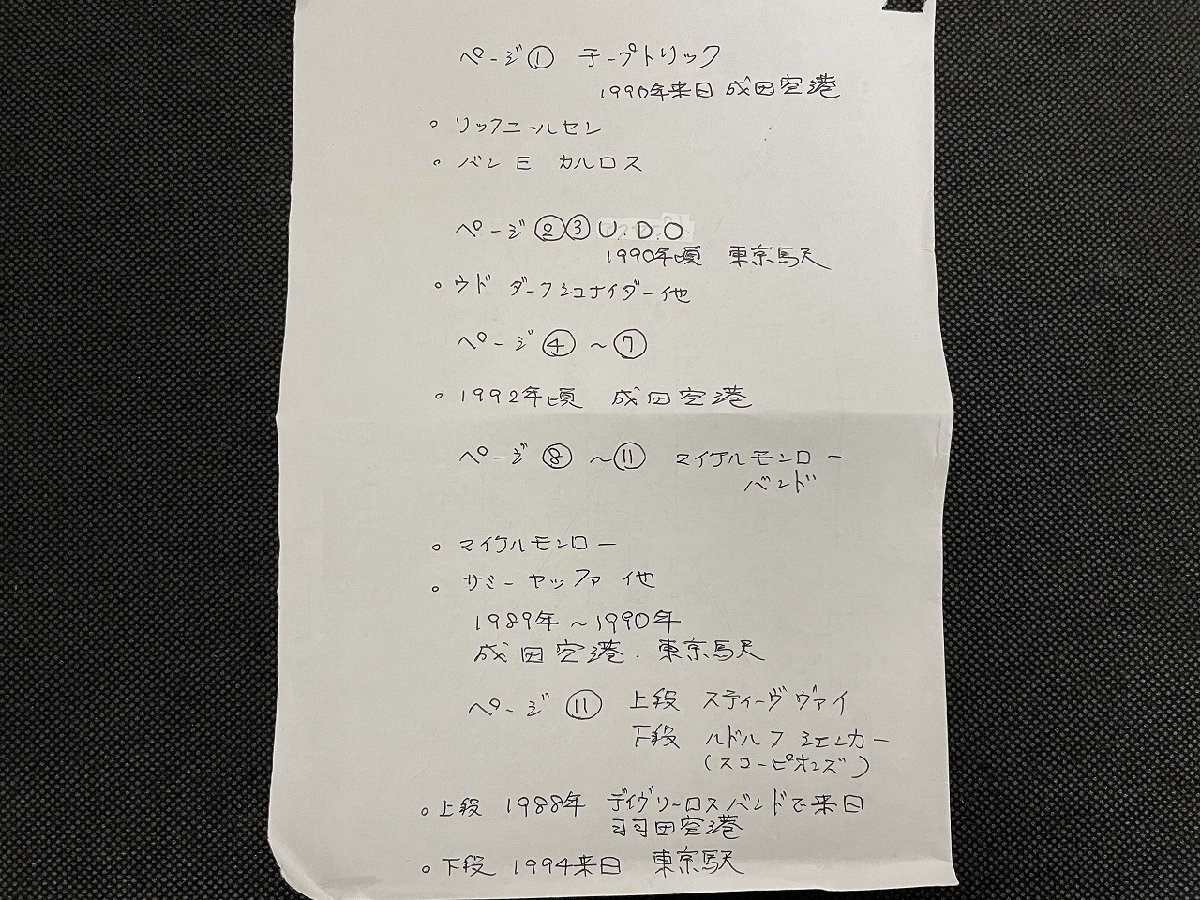 ページ① チープトリック
1990年来日 成田空港
○ リックニールセン
○ バン E カルロス
ページ②③ U.D.O
1990年頃 東京駅
○ ウド ダークシュナイダー他
ページ④～⑦
○ 1992年頃 成田空港
ページ⑧～⑪ マイケルモンロー
バンド
○ マイケルモンロー
○ サミーヤッファ 他
1989年～1990年
成田空港.東京駅
ページ⑪ 上段 スティーヴヴァイ
下段 ルドルフシェンカー
(スコーピオンズ)
○上段 1988年 デイヴリーロスバンドで来日
羽田空港
○下段 1994来日 東京駅